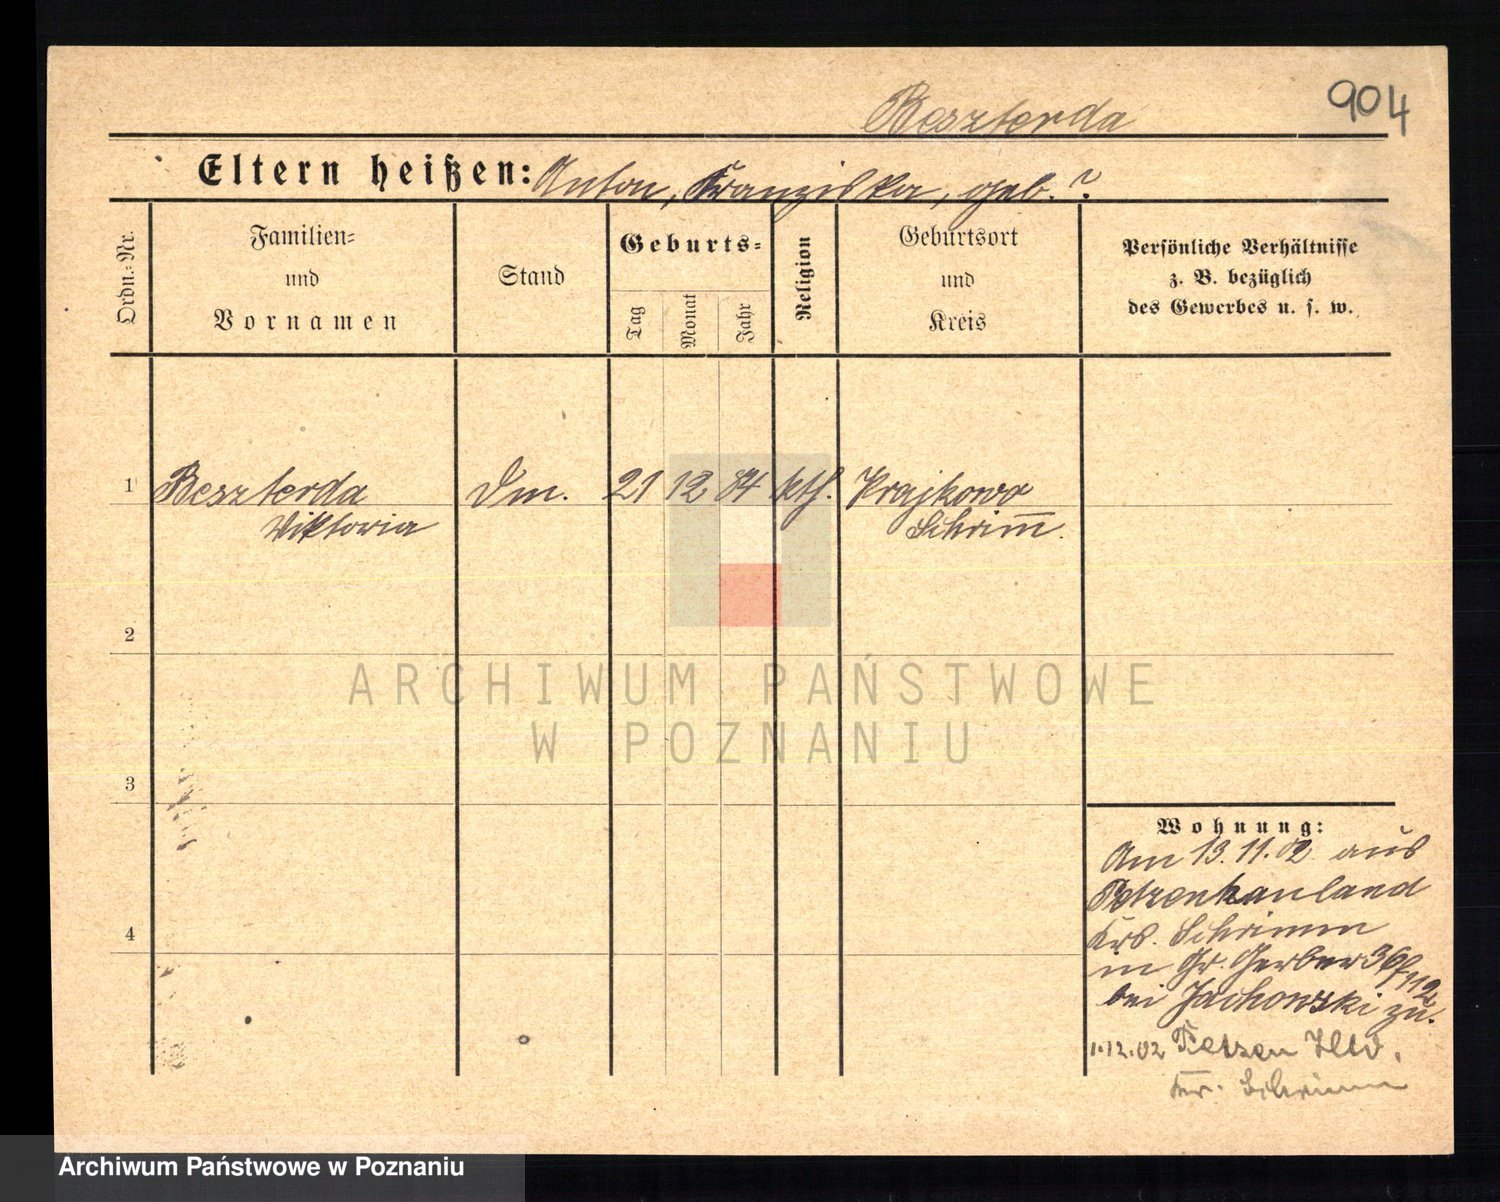 904
Beszterda
Eltern heißen: Anton, Franziska, geb. ?
Ordn.-Nr.
Familien-
und
Vornamen
Stand
Geburts-
Tag
Monat
Jahr
Religion
Geburtsort
und
Kreis
Persönliche Verhältnisse
z. B. bezüglich
des Gewerbes u. s. w.
1 Beszterda Dm. 21 12 84 kth. Krajkowo
Viktoria Schrim̅.
2
3
4
Wohnung:
Am 13.11.02 aus
Petzenhauland
Krs. Schrimm
in Gr. Gerber 36
bei Jachowski zu.
1.12.02 Hld.
Kr. Schrimm
ARCHIWUM PAŃSTWOWE
W POZNANIU
Archiwum Państwowe w Poznaniu